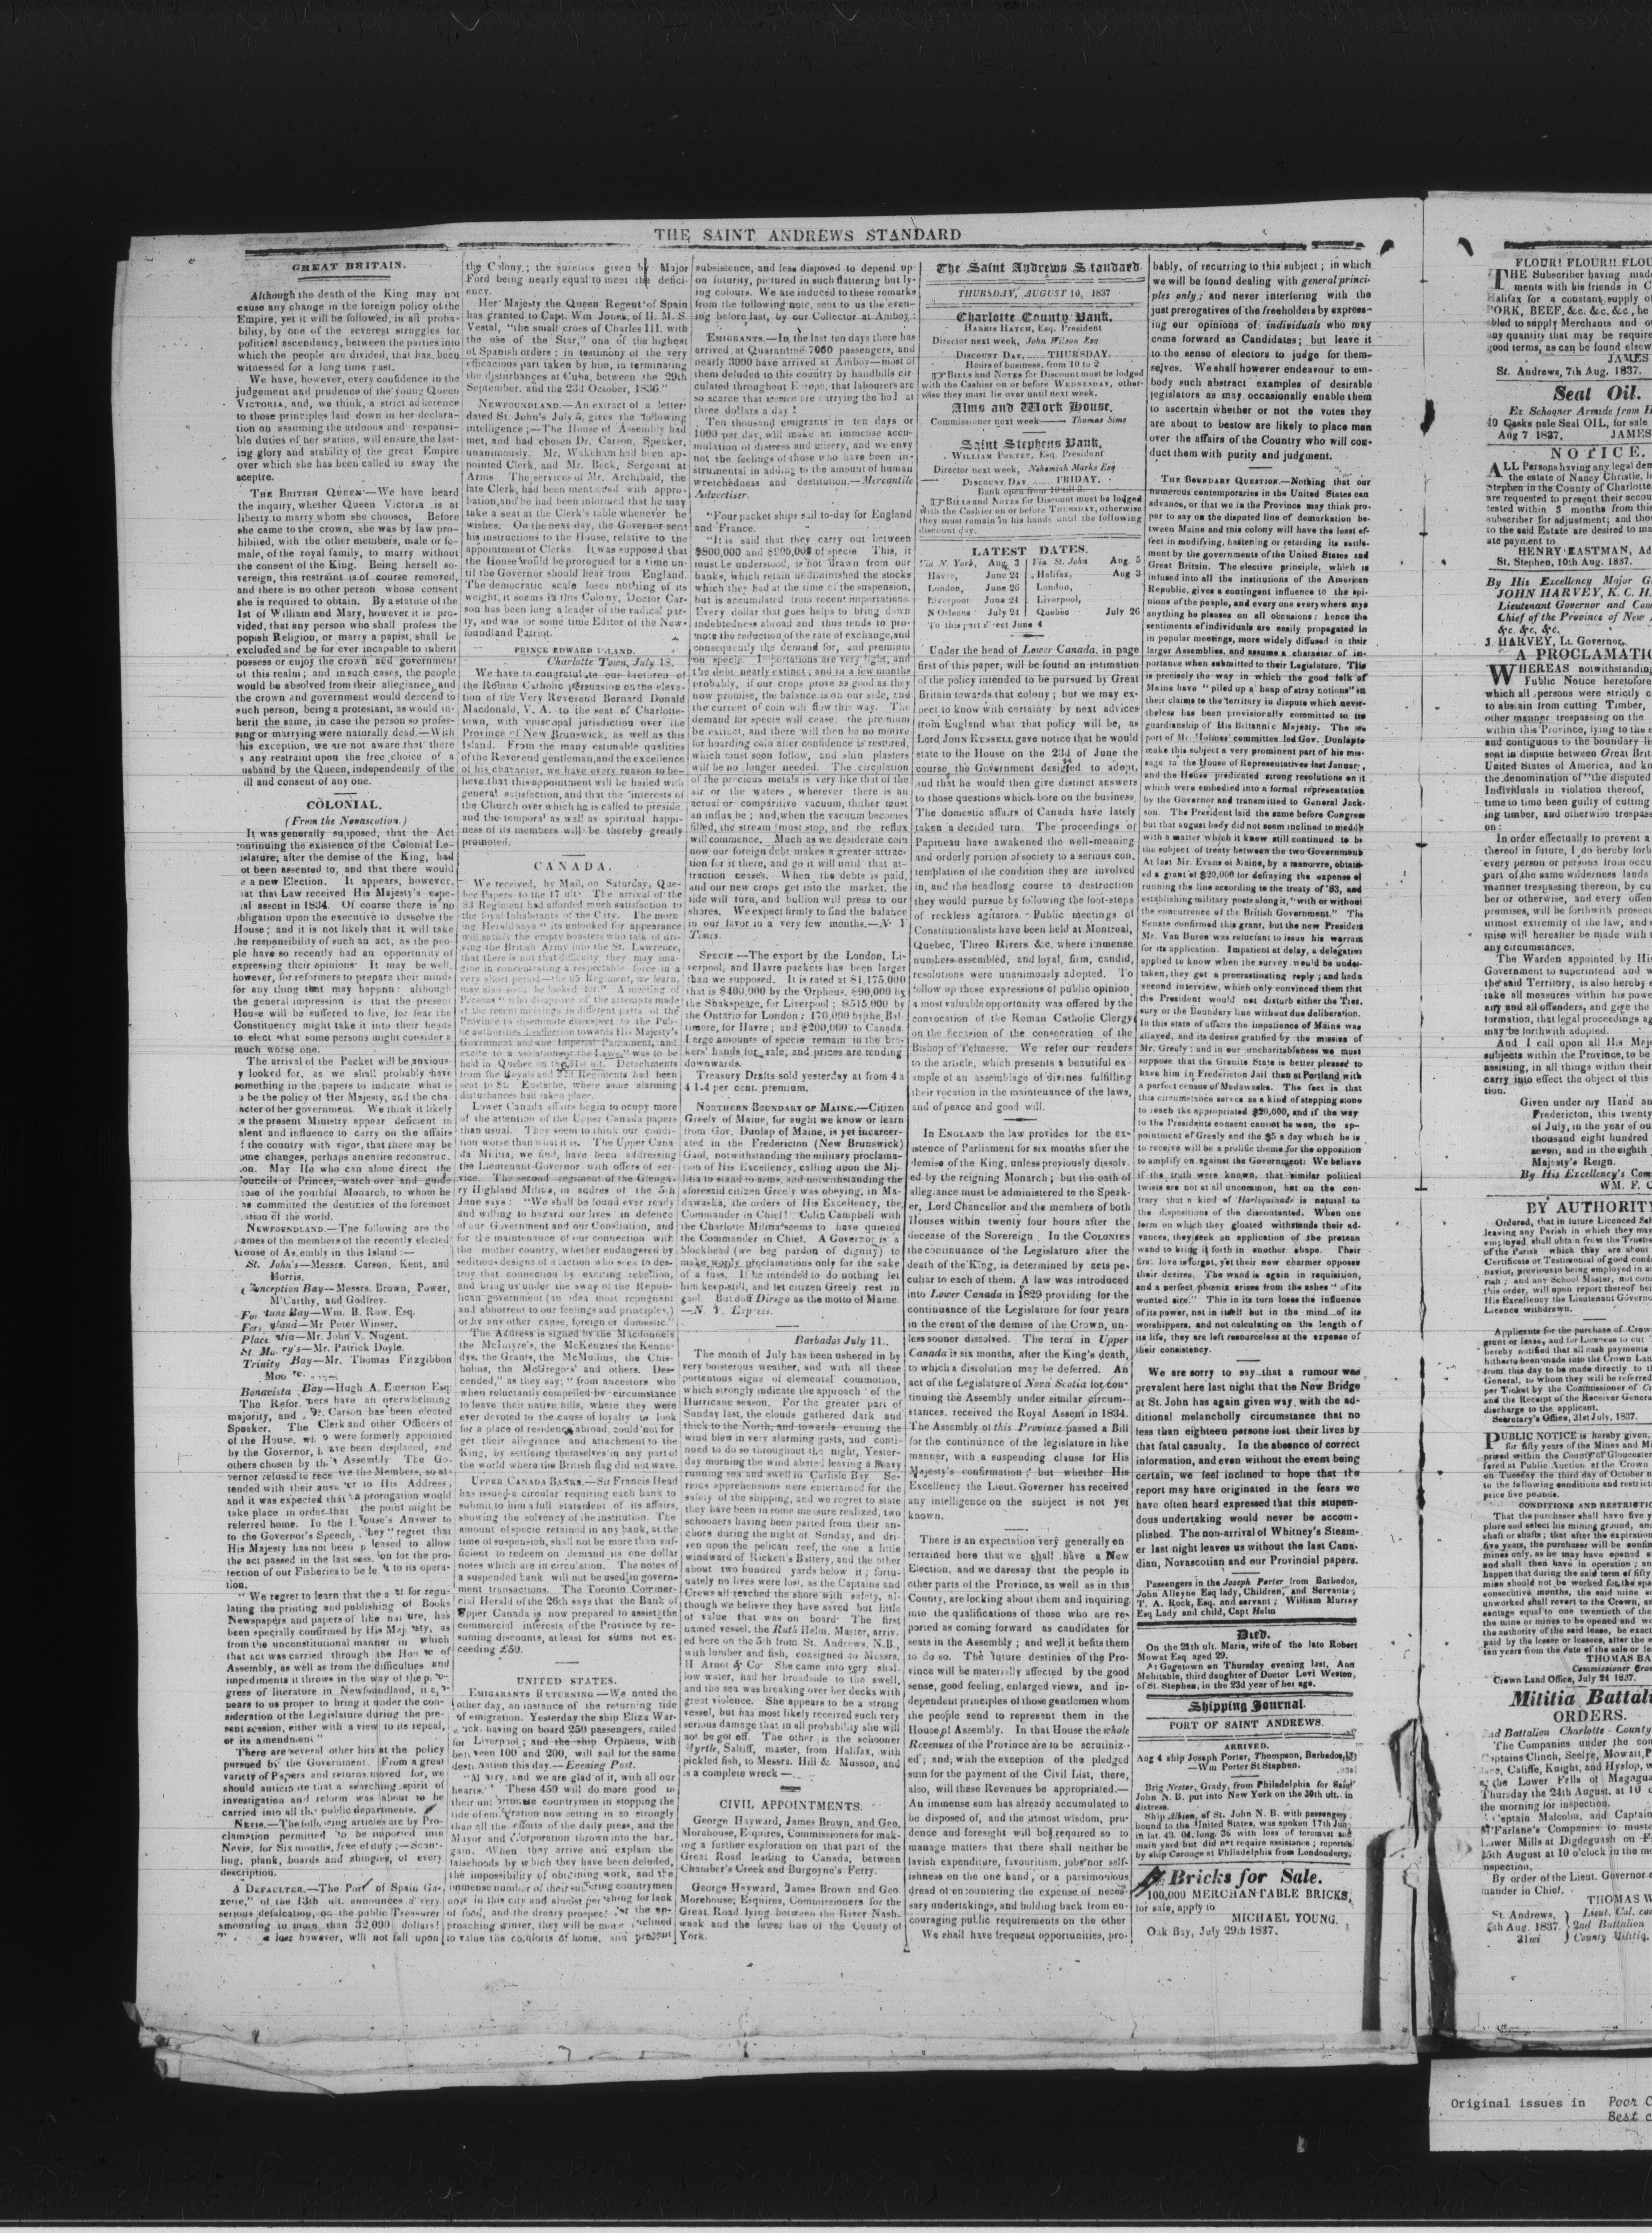 THE SAINT ANDREWS STANDARD
GREAT BRITAIN.
Although the death of the King may not
cause any change in the foreign policy of the
Empire, yet it will be followed, in all proba-
bility, by one of the severest struggles for
political ascendancy, between the parties into
which the people are divided, that has been
witnessed for a long time past.
We have, however, every confidence in the
judgement and prudence of the young Queen
VICTORIA, and, we think, a strict adherence
to those principles laid down in her declara-
tion on assuming the arduous and responsi-
ble duties of her station, will ensure the last-
ing glory and stability of the great Empire
over which she has been called to sway the
sceptre.
THE BRITISH QUEEN—We have heard
the inquiry, whether Queen Victoria is at
liberty to marry whom she chooses, Before
she came to the crown, she was by law pro-
hibited, with the other members, male or fe-
male, of the royal family, to marry without
the consent of the King. Being herself so-
vereign, this restraint is of course removed,
and there is no other person whose consent
she is required to obtain. By a statute of the
1st of William and Mary, however it is pro-
vided, that any person who shall profess the
popish Religion, or marry a papist, shall be
excluded and be for ever incapable to inherit
possess or enjoy the crown and government
of this realm; and in such cases, the people
would be absolved from their allegiance, and
the crown and government would descend to
such person, being a protestant, as would in-
herit the same, in case the person so profes-
sing or marrying were naturally dead.—With
this exception, we are not aware that there
s any restraint upon the free choice of a
usband by the Queen, independently of the
ill and consent of any one.
COLONIAL.
(From the Novascotion.)
It was generally supposed, that the Act
continuing the existence of the Colonial Le-
islature, after the demise of the King, had
ot been assented to, and that there would
e a new Election. It appears, however,
at that Law received His Majesty's expe-
al assent in 1834. Of course there is no
obligation upon the executive to dissolve the
House; and it is not likely that it will take
he responsibility of such an act, as the peo-
ple have so recently had an opportunity of
expressing their opinions It may be well,
however, for reformers to prepare their minds
for any thing that may happen: although
the general impression is that the present
House will be suffered to live, for fear the
Constituency might take it into their heads
to elect what some persons might consider a
much worse one.
The arrival of the Packet will be anxious-
y looked for, as we shall probably have
something in the papers to indicate what is
o be the policy of Her Majesty, and the cha-
acter of her government. We think it likely
s the present Ministry appear deficient in
alent and influence to carry on the affairs
f the country with vigor, that there may be
ome changes, perhaps an entire reconstruc-
on. May He who can alone direct the
ouncils of Princes, watch over and guide
ose of the youthful Monarch, to whom he
as committed the destinies of the foremost
ation of the world.
NEWFOUNDLAND.—The following are the
ames of the members of the recently elected
House of Assembly in this Island:—
St. John's—Messrs. Carson, Kent, and
Morris.
Conception Bay—Messrs. Brown, Power,
M'Carthy, and Godfrey.
For tune Bay—Wm. B. Row, Esq.
Fer yland—Mr Peter Winser.
Place ntia—Mr. John V. Nugent.
St. Ma ry's—Mr. Patrick Doyle.
Trinity Bay—Mr. Thomas Fitzgibbon
Moo
Bonavista Bay—Hugh A. Emerson Esq.
The Refor mers have an overwhelming
majority, and Dr. Carson has been elected
Speaker. The Clerk and other Officers of
of the House, wh o were formerly appointed
by the Governor, h ave been displaced, and
others chosen by the Assembly The Go-
vernor refused to rece ive the Members, so at-
tended with their answ er to His Address;
and it was expected that a prorogation would
take place in order that the point might be
referred home. In the House's Answer to
to the Governor's Speech, they "regret that
His Majesty has not been p leased to allow
the act passed in the last sess ion for the pro-
tection of our Fisheries to be le ft to its opera-
tion.
"We regret to learn that the a ct for regu-
lating the printing and publishing of Books
Newspapers and papers of like nat ure, has
been specially confirmed by His Maj esty, as
from the unconstitutional manner in which
that act was carried through the Hou se of
Assembly, as well as from the difficulties and
impediments it throws in the way of the p ro-
gress of literature in Newfoundland, it a p-
pears to us proper to bring it under the con-
sideration of the Legislature during the pre-
sent session, either with a view to its repeal,
or its amendment"
There are several other hits at the policy
pursued by the Government. From a great
variety of Papers and returns moved for, we
should anticipate that a searching spirit of
investigation and reform was about to be
carried into all the public departments.
NEVIS.—The following articles are by Pro-
clamation permitted to be imported into
Nevis, for Six months, free of duty:—Scant-
ling, plank, boards and shingles, of every
description.
A DEFAULTER.—The Port of Spain Ga-
zette, of 13th ult. announces a very
serious defalcation, on the public Treasurer
amounting to more than 32,000 dollars!
loss however, will not fall upon
the Colony; the sureties given by Major
Ford being nearly equal to meet the defici-
ency.
Her Majesty the Queen Regent of Spain
has granted to Capt. Wm Jones, of H. M. S.
Vestal, "the small cross of Charles III. with
the use of the Star," one of the highest
of Spanish orders; in testimony of the very
efficacious part taken by him, in terminating
the disturbances at Cuba, between the 29th
September, and the 23d October, 1836"
NEWFOUNDLAND.—An extract of a letter
dated St. John's July 5, gives the following
intelligence;—The House of Assembly had
met, and had chosen Dr. Carson, Speaker,
unanimously. Mr. Wakeham had been ap-
pointed Clerk, and Mr. Beck, Sergeant at
Arms The services of Mr. Archibald, the
late Clerk, had been mentioned with appro-
bation, and he had been informed that he may
take a seat at the Clerk's table whenever he
wishes. On the next day, the Governor sent
his instructions to the House, relative to the
appointment of Clerks. It was supposed that
the House would be prorogued for a time un-
til the Governor should hear from England.
The democratic scale loses nothing of its
weight, it seems in this Colony, Doctor Car-
son has been long a leader of the radical par-
ty, and was for some time Editor of the New-
foundland Patriot.
PRINCE EDWARD ISLAND.
Charlotte Town, July 18.
We have to congratulate our brethren of
the Roman Catholic persuasion on the eleva-
tion of the Very Reverend Bernard Donald
Macdonald, V. A. to the seat of Charlotte-
town, with episcopal jurisdiction over the
Province of New Brunswick, as well as this
Island. From the many estimable qualities
of the Reverend gentleman, and the excellence
of his character, we have every reason to be-
lieve that this appointment will be hailed with
general satisfaction, and that the interests of
the Church over which he is called to preside,
and the temporal as well as spiritual happi-
ness of its members will be thereby greatly
promoted.
CANADA.
We received, by Mail, on Saturday, Que-
bec Papers to the 17 ult The arrival of the
83 Regiment had afforded much satisfaction to
the loyal Inhabitants of the City. The morn
ing Herald says "its unlooked for appearance
will satisfy the empty boasters who talk of dri-
ving the British Army into the St. Lawrence,
that there is not that difficulty they may ima-
gine in concentrating a respectable force in a
very short period—the 65 Regiment, we learn,
may also soon be looked for." A meeting of
Persons "who disapprove of the attempts made
at the recent meetings in different parts of the
Province to disseminate disrespect to the Pub-
lic authorities, disaffection towards His Majesty's
Government and the Imperial Parliament, and
excite to a violation of the Laws," was to be
held in Quebec on the 31st ult. Detachments
from the Royals and 32d Regiments had been
sent to St. Eustache, where some alarming
disturbances had taken place.
Lower Canada affairs begin to ocupy more
of the attention of the Upper Canada papers
than usual. They seem to think our condi-
tion worse than what it is. The Upper Cana-
da Militia, we find, have been addressing
the Lieutenant-Governor with offers of ser-
vice. The second regiment of the Glenga-
ry Highland Militia, in addres of the 5th
June says: "We shall be found ever ready
and willing to hazard our lives in defence
of our Government and our Constitution, and
for the maintenance of our connection with
the mother country, whether endangered by
seditious designs of a faction who seek to des-
troy that connection by exciting rebellion,
and bring us under the sway of the Repub-
lican government (an idea most repugnant
and abhorrent to our feelings and principles,)
or by any other cause, foreign or domestic."
The Address is signed by the Macdonnels
the McIntyre's, the McKenzies the Kenne-
dys, the Grants, the McMullins, the Chis-
holms, the McGregors and others. Des-
cended," as they say; "from ancestors who
when reluctantly compelled by circumstance
to leave their native hills, where they were
ever devoted to the cause of loyalty to look
for a place of residence abroad, could not for
get their allegiance and attachment to the
King, by settleing themselves in any part of
the world where the British flag did not wave.
UPPER CANADA BANKS.—Sir Francis Head
has issued a circular requiring each bank to
submit to him a full statement of its affairs,
showing the solvency of the institution. The
amount of specie retained in any bank, at the
time of suspension, shall not be more than suf-
ficient to redeem on demand its one dollar
notes which are in circulation. The notes of
a suspended bank will not be used in govern-
ment transactions. The Toronto Commer-
cial Herald of the 26th says that the Bank of
Upper Canada is now prepared to assist the
commercial interests of the Province by re-
suming discounts, at least for sums not ex-
ceeding £50.
UNITED STATES.
EMIGRANTS RETURNING—We noted the
other day, an instance of the returning tide
of emigration. Yesterday the ship Eliza War-
wick, having on board 250 passengers, sailed
for Liverpool; and the ship Orpheus, with
between 100 and 200, will sail for the same
destination this day.—Evening Post.
"Marry, and we are glad of it, with all our
hearts." These 450 will do more good to
their unfortunate countrymen in stopping the
tide of emigration now setting in so strongly
than all the efforts of the daily press, and the
Mayor and Corporation thrown into the bar-
gain. When they arrive and explain the
falsehoods by which they have been deluded,
the impossibility of obtaining work, and the
immense number of their suffering countrymen
now in this city and almost perishing for lack
of food, and the dreary prospect for the ap-
proaching winter, they will be more inclined
to value the comforts of home, and present
subsistence, and less disposed to depend up-
on futurity, pictured in such flattering but ly-
ing colours. We are induced to these remarks
from the following note, sent to us the even-
ing before last, by our Collector at Amboy:
EMIGRANTS.—In the last ten days there has
arrived at Quarantine 7060 passengers, and
nearly 3000 have arrived at Amboy—most of
them deluded to this country by handbills cir
culated throughout Europe, that labourers are
so scarce that women are carrying the hod at
three dollars a day!
Ten thousand emigrants in ten days or
1000 per day, will make an immense accu-
mulation of distress and misery, and we envy
not the feelings of those who have been in-
strumental in adding to the amount of human
wretchedness and destitution.—Mercantile
Advertiser.
"Four packet ships sail to-day for England
and France.
"It is said that they carry out between
$800,000 and $900,000 of specie This, it
must be understood, is not drawn from our
banks, which retain undiminished the stocks
which they had at the time of the suspension,
but is accumulated from recent importations.
Every dollar that goes helps to bring down
indebtedness abroad and thus tends to pro-
mote the reduction of the rate of exchange, and
consequently the demand for, and premium
on specie. Importations are very light, and
the debt nearly extinct; and in a few months
probably, if our crops prove as good as they
now promise, the balance is on our side, and
the current of coin will flow this way. The
demand for specie will cease; the premium
be extinct, and there will then be no motive
for hoarding coin after confidence is restored,
which must soon follow, and shin plasters
will be no longer needed. The circulation
of the precious metals is very like that of the
air or the waters, wherever there is an
actual or comparitive vacuum, thither must
an influx be; and, when the vacuum becomes
filled, the stream must stop, and the reflux
will commence. Much as we desiderate coin
now our foreign debt makes a greater attrac-
tion for it there, and go it will until that at-
traction ceases. When the debts is paid,
and our new crops get into the market, the
tide will turn, and bullion will press to our
shares. We expect firmly to find the balance
in our favor in a very few months.—N. Y
Times.
SPECIE—The export by the London, Li-
verpool, and Havre packets has been larger
than we supposed. It is rated at $1,175,000
that is $400,000 by the Orpheus, $90,000 by
the Shakspeare, for Liverpool; $515,000 by
the Ontario for London; 170,000 by the Bal-
timore, for Havre; and $200,000 to Canada.
Large amounts of specie remain in the bro-
kers' hands for sale, and prices are tending
downwards.
Treasury Drafts sold yesterday at from 4 a
4 1-4 per cent. premium.
NORTHERN BOUNDARY OF MAINE.—Citizen
Greely of Maine, for aught we know or learn
from Gov. Dunlap of Maine, is yet incarcer-
ated in the Fredericton (New Brunswick)
Gaol, notwithstanding the military proclama-
tion of His Excellency, calling upon the Mi-
litia to stand to arms, and notwithstanding the
aforesaid citizen Greely was obeying, in Ma-
dawaska, the orders of His Excellency, the
Commander in Chief! Colin Campbell with
the Charlotte Militia seems to have quieted
the Commander in Chief. A Governor is a
blockhead (we beg pardon of dignity) to
make wordy proclamations only for the sake
of a fuss. If he intended to do nothing let
him keep still, and let citizen Greely rest in
gaol. But doff Dirego as the motto of Maine.
—N. Y. Express.
Barbados July 11.
The month of July has been ushered in by
very boisterous weather, and with all these
portentous signs of elemental commotion,
which strongly indicate the approach of the
Hurricane season. For the greater part of
Sunday last, the clouds gathered dark and
thick to the North, and towards evening the
wind blew in very alarming gusts, and conti-
nued to do so throughout the night, Yester-
day morning the wind abated leaving a heavy
running sea and swell in Carlisle Bay Se-
rious apprehensions were entertained for the
safety of the shipping, and we regret to state
they have been in some measure realized, two
schooners having been parted from their an-
chors during the night of Sunday, and dri-
ven upon the pelican reef, the one a little
windward of Rickett's Battery, and the other
about two hundred yards below it; fortu-
nately no lives were lost, as the Captains and
Crews all reached the shore with safety, al-
though we believe they have saved but little
of value that was on board The first
named vessel, the Ruth Helm, Master, arriv-
ed here on the 5th from St. Andrews, N.B.,
with lumber and fish, consigned to Messrs.
H. Arnot & Co She came into very shal-
low water, had her broadside to the swell,
and the sea was breaking over her decks with
great violence. She appears to be a strong
vessel, but has most likely received such very
serious damage that in all probability she will
not be got off. The other is the schooner
Myrtle, Saltiff, master, from Halifax, with
pickled fish, to Messrs. Hill & Musson, and
is a complete wreck—
CIVIL APPOINTMENTS.
George Hayward, James Brown, and Geo.
Morehouse, Esquires, Commissioners for mak-
ing a further exploration on that part of the
Great Road leading to Canada, between
Chamber's Creek and Burgoyne's Ferry.
George Hayward, James Brown and Geo
Morehouse; Esquires, Commissioners for the
Great Road lying between the River Nash-
waak and the lower line of the County of
York.
The Saint Andrews Standard.
THURSDAY, AUGUST 10, 1837
Charlotte County Bank.
HARRIS HATCH, Esq. President
Director next week, John Wilson Esq
DISCOUNT DAY, ...... THURSDAY.
Hours of business, from 10 to 2
BILLS and NOTES for Discount must be lodged
with the Cashier on or before WEDNESDAY, other-
wise they must lie over until next week.
Alms and Work House.
Commissioner next week—— Thomas Sime
Saint Stephens Bank,
WILLIAM PORTER, Esq. President
Director next week, Nehemiah Marks Esq
DISCOUNT DAY ...... FRIDAY.
Bank open from 10 till 3.
BILLS and NOTES for Discount must be lodged
with the Cashier on or before THURSDAY, otherwise
they must remain in his hands until the following
discount day.
LATEST DATES.
Via N. York, Aug. 3 Via St. John Aug. 5
Havre, June 24 Halifax, Aug 3
London, June 26 London,
Liverpool June 24 Liverpool,
N Orleans July 21 Quebec July 26
To this port direct June 4
Under the head of Lower Canada, in page
first of this paper, will be found an intimation
of the policy intended to be pursued by Great
Britain towards that colony; but we may ex-
pect to know with certainty by next advices
from England what that policy will be, as
Lord JOHN RUSSELL gave notice that he would
state to the House on the 23d of June the
course the Government desigted to adopt,
and that he would then give distinct answers
to those questions which bore on the business.
The domestic affairs of Canada have lately
taken a decided turn. The proceedings of
Papineau have awakened the well-meaning
and orderly portion of society to a serious con-
templation of the condition they are involved
in, and the headlong course to destruction
they would pursue by following the foot-steps
of reckless agitators. Public meetings of
Constitutionalists have been held at Montreal,
Quebec, Three Rivers &c. where immense
numbers assembled, and loyal, firm, candid,
resolutions were unanimously adopted. To
follow up these expressions of public opinion,
a most valuable opportunity was offered by the
convocation of the Roman Catholic Clergy
on the occasion of the consecration of the
Bishop of Telmesse. We refer our readers
to the article, which presents a beautiful ex-
ample of an assemblage of divines fulfilling
their vocation in the maintenance of the laws,
and of peace and good will.
In ENGLAND the law provides for the ex-
istence of Parliament for six months after the
demise of the King, unless previously dissolv-
ed by the reigning Monarch; but the oath of
allegiance must be administered to the Speak-
er, Lord Chancellor and the members of both
Houses within twenty four hours after the
decease of the Sovereign. In the COLONIES
the continuance of the Legislature after the
death of the King, is determined by acts pe-
culiar to each of them. A law was introduced
into Lower Canada in 1829 providing for the
continuance of the Legislature for four years
in the event of the demise of the Crown, un-
less sooner dissolved. The term in Upper
Canada is six months, after the King's death,
to which a disolution may be deferred. An
act of the Legislature of Nova Scotia for con-
tinuing the Assembly under similar circum-
stances, received the Royal Assent in 1834.
The Assembly of this Province passed a Bill
for the continuance of the legislature in like
manner, with a suspending clause for His
Majesty's confirmation; but whether His
Excellency the Lieut. Governer has received
any intelligence on the subject is not yet
known.
There is an expectation very generally en-
tertained here that we shall have a New
Election, and we daresay that the people in
other parts of the Province, as well as in this
County, are locking about them and inquiring
into the qualifications of those who are re-
ported as coming forward as candidates for
seats in the Assembly; and well it befits them
to do so. The future destinies of the Pro-
vince will be materially affected by the good
sense, good feeling, enlarged views, and in-
dependent principles of those gentlemen whom
the people send to represent them in the
House of Assembly. In that House the whole
Revenues of the Province are to be scrutiniz-
ed; and, with the exception of the pledged
sum for the payment of the Civil List, there,
also, will these Revenues be appropriated.—
An immense sum has already accumulated to
be disposed of, and the utmost wisdom, pru-
dence and foresight will be required so to
manage matters that there shall neither be
lavish expenditure, favouritism, jobs nor self-
ishness on the one hand, or a parsimonious
dread of encountering the expense of neces-
sary undertakings, and holding back from en-
couraging public requirements on the other
We shall have frequent opportunities, pro-
bably, of recurring to this subject; in which
we will be found dealing with general princi-
ples only; and never interfering with the
just prerogatives of the freeholders by express-
ing our opinions of individuals who may
come forward as Candidates; but leave it
to the sense of electors to judge for them-
selves. We shall however endeavour to em-
body such abstract examples of desirable
legislators as may occasionally enable them
to ascertain whether or not the votes they
are about to bestow are likely to place men
over the affairs of the Country who will con-
duct them with purity and judgment.
THE BOUNDARY QUESTION.—Nothing that our
numerous contemporaries in the United States can
advance, or that we in the Province may think pro-
per to say on the disputed line of demarkation be-
tween Maine and this colony will have the least ef-
fect in modifying, hastening or retarding its settle-
ment by the governments of the United States and
Great Britain. The elective principle, which is
infused into all the institutions of the American
Republic, gives a contingent influence to the opi-
nions of the people, and every one every where says
anything he pleases on all occasions: hence the
sentiments of individuals are easily propagated in
in popular meetings, more widely diffused in their
larger Assemblies, and assume a character of im-
portance when submitted to their Legislature. This
is precisely the way in which the good folk of
Maine have "piled up a heap of stray notions" in
their claims to the territory in dispute which never-
theless has been provisionally committed to the
guardianship of His Britannic Majesty. The re-
port of Mr. Holmes' committee led Gov. Dunlap to
make this subject a very prominent part of his mes-
sage to the House of Representatives last January,
and the House predicated strong resolutions on it
which were embodied into a formal representation
by the Governor and transmitted to General Jack-
son. The President laid the same before Congress
but that august body did not seem inclined to meddle
with a matter which it knew still continued to be
the subject of treaty between the two Governments
At last Mr. Evans of Maine, by a manœuvre, obtain-
ed a grant of $20,000 for defraying the expense of
running the line according to the treaty of '83, and
establishing military posts along it, "with or without
the concurrence of the British Government." The
Senate confirmed this grant, but the new President
Mr. Van Buren was reluctant to issue his warrant
for its application. Impatient at delay, a delegation
applied to know when the survey would be under-
taken, they got a procrastinating reply; and had a
second interview, which only convinced them that
the President would not disturb either the Trea-
sury or the Boundary line without due deliberation.
In this state of affairs the impatience of Maine was
allayed, and its desires gratified by the mission of
Mr. Greely: and in our uncharitableness we must
suppose that the Granite State is better pleased to
have him in Fredericton Jail than at Portland with
a perfect census of Madawaska. The fact is that
this circumstance serves as a kind of stepping stone
to reach the appropriated $20,000, and if the way
to the Presidents consent cannot be won, the ap-
pointment of Greely and the $5 a day which he is
to receive will be a prolific theme for the opposition
to amplify on against the Government: We believe
if the truth were known, that similar political
twists are not at all uncommon, but on the con-
trary that a kind of Harliquinade is natural to
the dispositions of the discontented. When one
form on which they gloated withstands their ad-
vances, they seek an application of the protean
wand to bring it forth in another shape. Their
first love is forgot, yet their new charmer opposes
their desires. The wand is again in requisition,
and a perfect phœnix arises from the ashes "of its
wonted sire." This in its turn loses the influence
of its power, not in itself but in the mind of its
worshippers, and not calculating on the length of
its life, they are left resourceless at the expense of
their consistency.
We are sorry to say that a rumour was
prevalent here last night that the New Bridge
at St. John has again given way, with the ad-
ditional melancholly circumstance that no
less than eighteen persons lost their lives by
that fatal casualty. In the absence of correct
information, and even without the event being
certain, we feel inclined to hope that the
report may have originated in the fears we
have often heard expressed that this stupen-
dous undertaking would never be accom-
plished. The non-arrival of Whitney's Steam-
er last night leaves us without the last Cana-
dian, Novascotian and our Provincial papers.
Passengers in the Joseph Porter from Barbados,
John Alleyne Esq lady, Children, and Servants;
T. A. Rock, Esq. and servant; William Murray
Esq Lady and child, Capt Helm
Died.
On the 24th ult. Maria, wife of the late Robert
Mowat Esq aged 29.
At Gagetown on Thursday evening last, Ann
Mehitable, third daughter of Doctor Levi Weston,
of St. Stephen, in the 23d year of her age.
Shipping Journal
PORT OF SAINT ANDREWS.
ARRIVED.
Aug 4 ship Joseph Porter, Thompson, Barbados,
—Wm Porter St Stephen.
Brig Nestor, Grady, from Philadelphia for Saint
John N. B. put into New York on the 30th ult. in
distress.
Ship Albion, of St. John N. B. with passengers
bound to the United States, was spoken 17th Jan
in lat. 43. 04. long. 36 with loss of foremast and
main yard but did not require assistance; reported
by ship Carouge at Philadelphia from Londonderry.
Bricks for Sale.
100,000 MERCHANTABLE BRICKS,
for sale, apply to
MICHAEL YOUNG.
Oak Bay, July 29th 1837.
FLOUR! FLOUR!! FLOU
THE Subscriber having made
ments with his friends in C
Halifax for a constant supply o
PORK, BEEF, &c. &c. &c, he
bled to supply Merchants and o
any quantity that may be require
good terms, as can be found elsew
JAMES
St. Andrews, 7th Aug. 1837.
Seal Oil.
Ex Schooner Armide from
40 Casks pale Seal OIL, for sale
Aug 7 1837. JAMES
NOTICE.
ALL Persons having any legal dem
the estate of Nancy Christie,
Stephen in the County of Charlotte
are requested to present their accou
tested within 3 months from this
subscriber for adjustment; and tho
to the said Estate are desired to ma
ate payment to
HENRY EASTMAN, Ad
St. Stephen, 10th Aug. 1837.
By His Excellency Major G
JOHN HARVEY, K. C. H.
Lieutenant Governor and Com
Chief of the Province of New
&c. &c. &c.
J. HARVEY, Lt. Governor.
A PROCLAMATIO
WHEREAS notwithstanding
Public Notice heretofore
which all persons were strictly c
to abstain from cutting Timber,
other manner trespassing on the
within this Province, lying to the
and contiguous to the boundary li
sent in dispute between Great Brit
United States of America, and kn
the denomination of "the disputed
Individuals in violation thereof,
time to time been guilty of cutting
ing timber, and otherwise trespass
on:
In order effectually to prevent a
thereof in future, I do hereby forb
every person or persons from occu
part of the same wilderness lands
manner trespassing thereon, by cu
ber or otherwise, and every offen
premises, will be forthwith prosecu
utmost extremity of the law, and
mise will hereafter be made with
any circumstances.
The Warden appointed by His
Government to superintend and w
the said Territory, is also hereby
take all measures within his powe
any and all offenders, and give the
formation, that legal proceedings ag
may be forthwith adopted.
And I call upon all His Maje
subjects within the Province, to be
assisting, in all things within their
carry into effect the object of this
tion.
Given under my Hand an
Fredericton, this twenty
of July, in the year of ou
thousand eight hundred
seven, and in the eighth
Majesty's Reign.
By His Excellency's Com
WM. F. O
BY AUTHORITY
Ordered, that in future Licenced Sch
leaving any Parish in which they may
employed shall obtain from the Trustee
of the Parish which they are about
Certificate or Testimonial of good condu
navior, previous to being employed in a
rish; and any School Master, not com
this order, will upon report thereof bei
His Excellency the Lieutenant Governo
Licence withdrawn.
Applicants for the purchase of Crow
grant or lease, and for Licences to cut
hereby notified that all cash payments
hitherto been made into the Crown Lan
from this day to be made directly to th
General, to whom they will be referred
per Ticket by the Commissioner of Cr
and the Receipt of the Receiver Genera
discharge to the applicant.
Secretary's Office, 31st July, 1837.
PUBLIC NOTICE is hereby given,
for fifty years of the Mines and Mi
prised within the County of Gloucester
fered at Public Auction at the Crown
on Tuesday the third day of October n
to the following conditions and restricti
price five pounds.
CONDITIONS AND RESTRICTIO
That the purchaser shall have five y
plore and select his mining ground, an
shaft or shafts; that after the expiration
five years, the purchaser will be confin
mines only, as he may have opened a
and shall then have in operation; an
happen that during the said term of fifty
mine should not be worked for the spa
consecutive months, the said mine s
unworked shall revert to the Crown, an
centage equal to one twentieth of the
the mine or mines to be opened and wo
the authority of the said lease, be exact
paid by the lessee or lessees, after the e
ten years from the date of the sale or le
THOMAS BA
Commissioner Crow
Crown Land Office, July 24 1837.
Militia Battali
ORDERS.
2nd Battalion Charlotte County
The Companies under the com
Captains Clinch, Seelye, Mowatt, P
Califfe, Knight, and Hyslop, w
the Lower Frlls of Magagua
Thursday the 24th August, at 10 o
the morning for inspection.
Captain Malcolm, and Captain
M'Farlane's Companies to muste
Lower Mills at Digdeguash on F
25th August at 10 o'clock in the mo
nspection,
By order of the Lieut. Governor
mander in Chief.
THOMAS W
St. Andrews, Lieut. Col. co
8th Aug. 1837. 2nd Battalion
31wi County Militia.
Original issues in Poor C
Best c